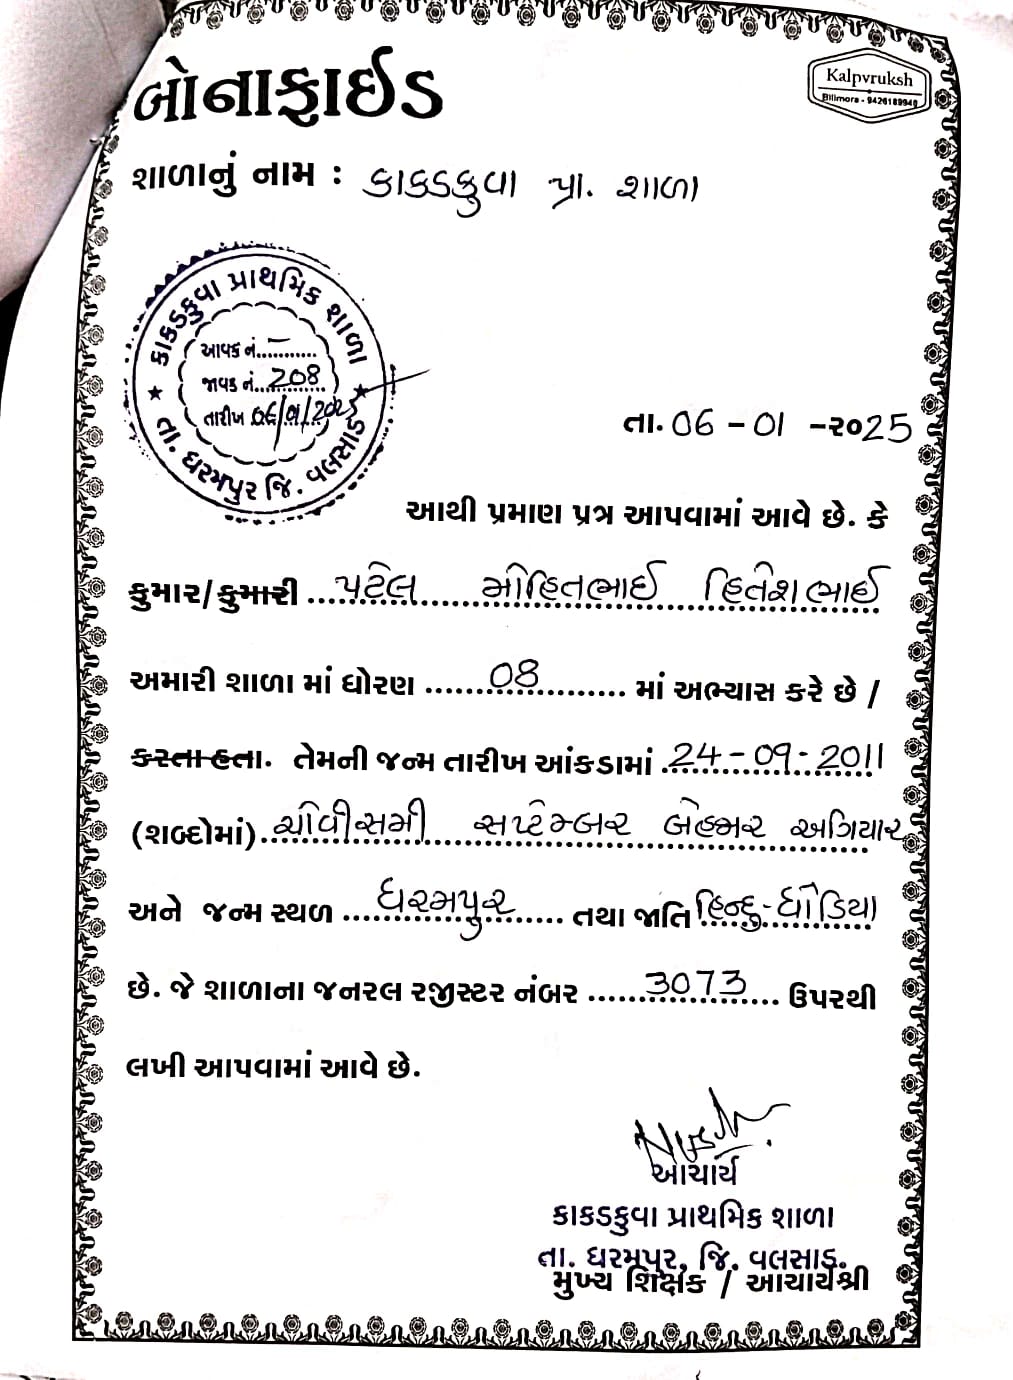 બોનાફાઈડ
Kalpvruksh
Bilimora - 9426189940
શાળાનું નામ : કાકડકુવા પ્રા. શાળા
કાકડકુવા પ્રાથમિક શાળા
આવક નં...........
જાવક નં...208
તારીખ 06/01/2025
તા. ધરમપુર જિ. વલસાડ
તા. 06 - 01 - ૨૦25
આથી પ્રમાણ પત્ર આપવામાં આવે છે. કે
કુમાર/કુમારી ....પટેલ મોહિતભાઈ હિતેશભાઈ
અમારી શાળા માં ધોરણ ........08.......... માં અભ્યાસ કરે છે /
કરતા હતા. તેમની જન્મ તારીખ આંકડામાં 24-09-2011
(શબ્દોમાં) ચોવીસમી સપ્ટેમ્બર બેહજાર અગિયાર
અને જન્મ સ્થળ ....ધરમપુર.... તથા જાતિ હિન્દુ-ધોડિયા
છે. જે શાળાના જનરલ રજીસ્ટર નંબર ......3073...... ઉપરથી
લખી આપવામાં આવે છે.
આચાર્ય
કાકડકુવા પ્રાથમિક શાળા
તા. ધરમપુર, જિ. વલસાડ.
મુખ્ય શિક્ષક / આચાર્યશ્રી